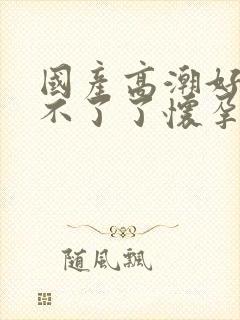 國產高潮好
不了了懷孕
随風飄